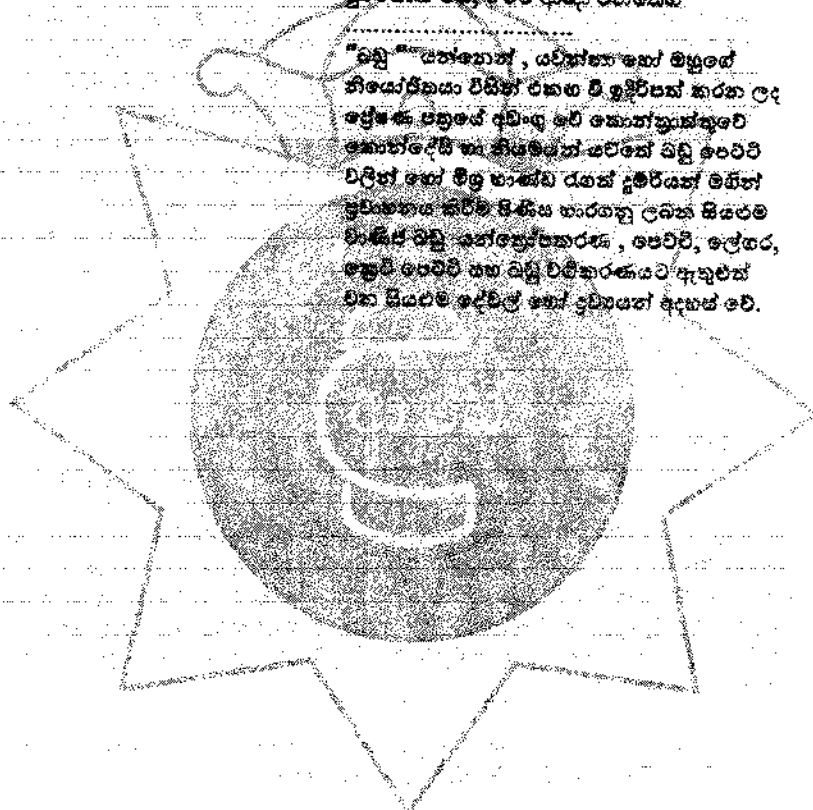 "බඩු" යන්නෙන් , යවන්නා හෝ ඔහුගේ
නියෝජිතයා විසින් එකඟ වී ඉදිරිපත් කරන ලද
ප්‍රේෂණ පත්‍රයේ අඩංගු වේ කොන්ත්‍රාත්තුවේ
කොන්දේසි හා නියමයන් යටතේ බඩු පෙට්ටි
වලින් හෝ මිශ්‍ර භාණ්ඩ රැගත් දුම්රියන් මගින්
ප්‍රවාහනය කිරීම පිණිස භාරගනු ලබන සියළුම
වාණිජ බඩු යන්ත්‍රෝපකරණ , පෙට්ටි, ලේගර,
ක්‍රේට් පෙට්ටි සහ බඩු වර්ගීකරණයට ඇතුළත්
වන සියළුම දේවල් හෝ ද්‍රව්‍යයන් අදහස් වේ.